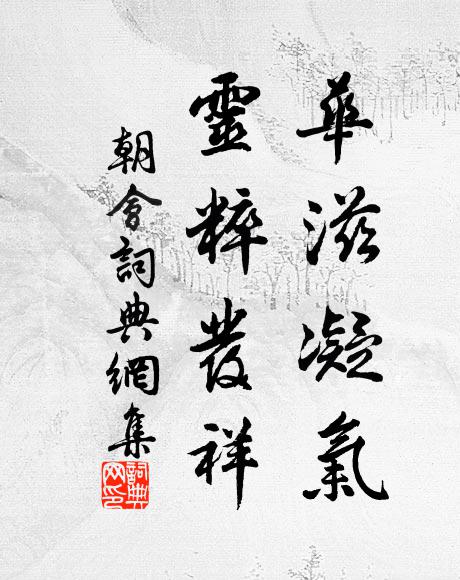 華滋凝氣
靈粹發祥
朝會詞典網集
詞典
网印